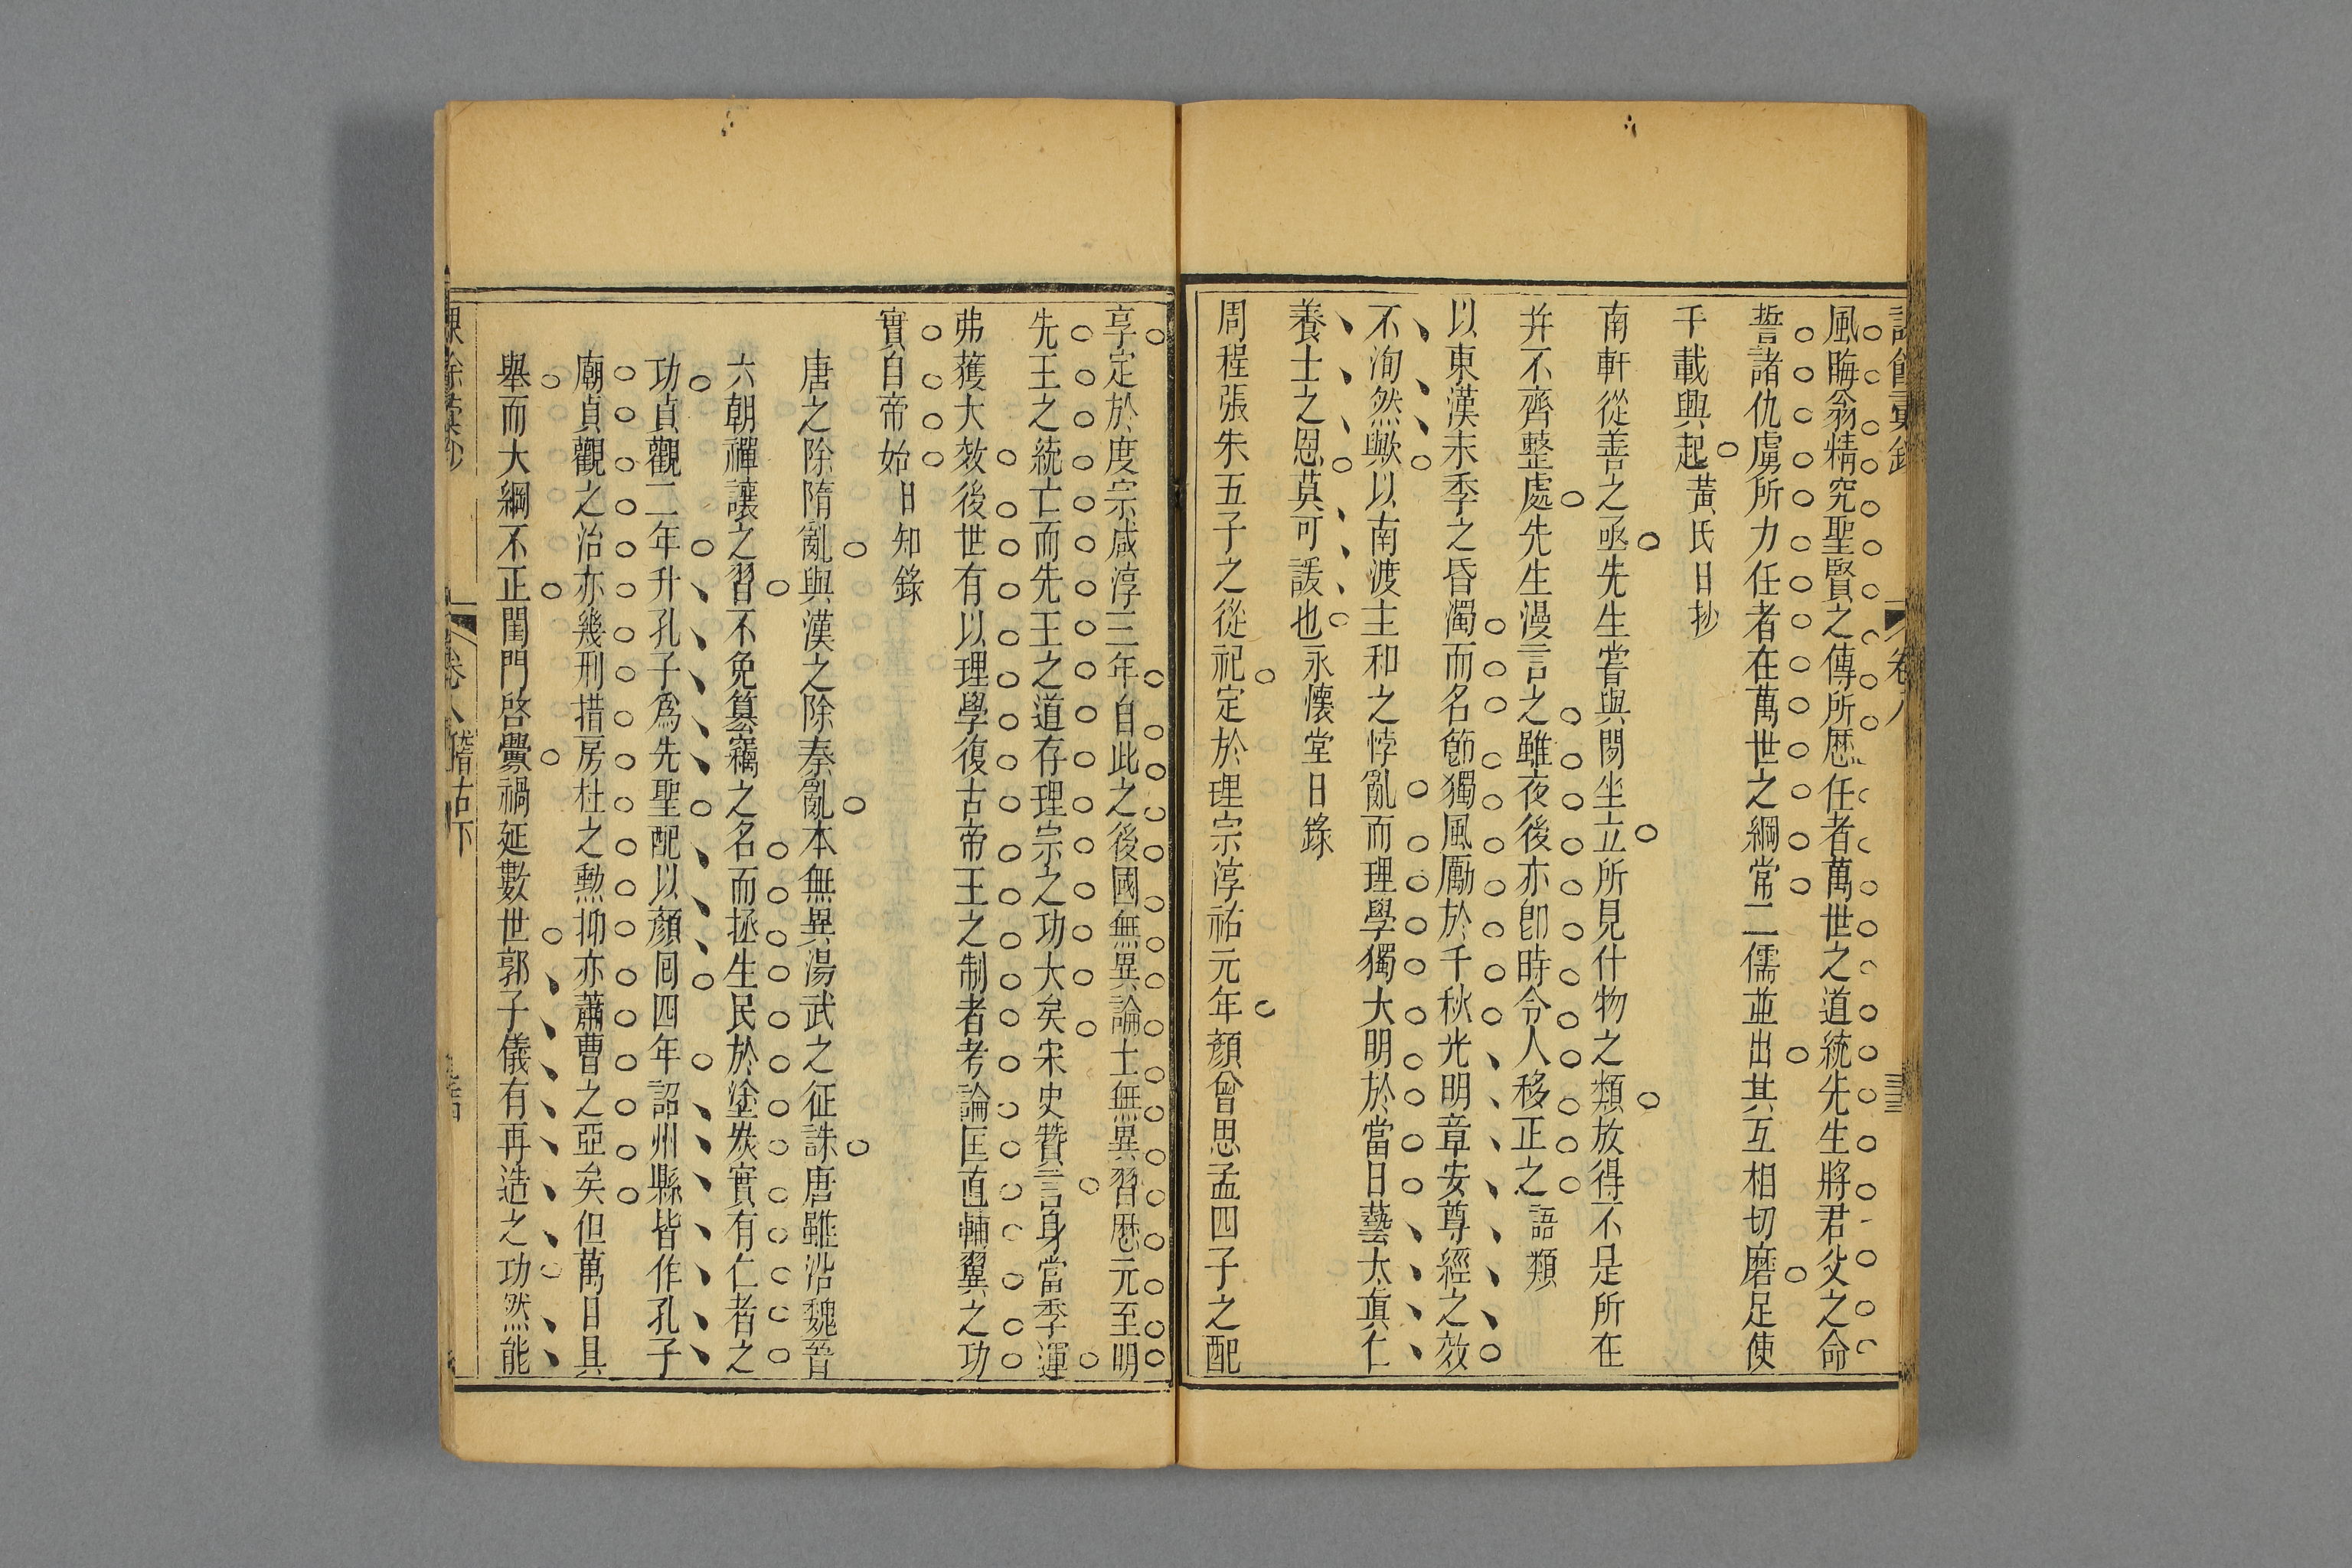 卷八
風晦翁精究聖賢之傳所歴任者萬世之道統先生將君父之命
誓諸仇虜所力任者在萬世之綱常二儒並出其互相切磨足使
千載興起 黃氏日抄
南軒從善之亟先生嘗與閒坐立所見什物之類放得不是所在
并不齊整處先生漫言之雖夜後亦卽時令人移正之 語類
以東漢末季之昏濁而名節獨風厲於千秋光明章安尊經之效
不洵然歟以南渡主和之悖亂而理學獨大明於當日藝太眞仁
養士之恩莫可諼也 永懷堂日錄
周程張朱五子之從祀定於理宗淳祐元年顏曾思孟四子之配
享定於度宗咸淳三年自此之後國無異論士無異習歴元至明
先王之統亡而先王之道存理宗之功大矣宋史贊言身當季運
弗獲大效後世有以理學復古帝王之制者考論匡直輔翼之功
實自帝始 日知錄
唐之除隋亂與漢之除秦亂本無異湯武之征誅唐雖沿魏晉
六朝禪讓之習不免篡竊之名而拯生民於塗炭實有仁者之
功貞觀二年升孔子爲先聖配以顏回四年詔州縣皆作孔子
廟貞觀之治亦幾刑措房杜之勲抑亦蕭曹之亞矣但萬目具
舉而大綱不正閨門啓釁禍延數世郭子儀有再造之功然能
卷八 稽古下